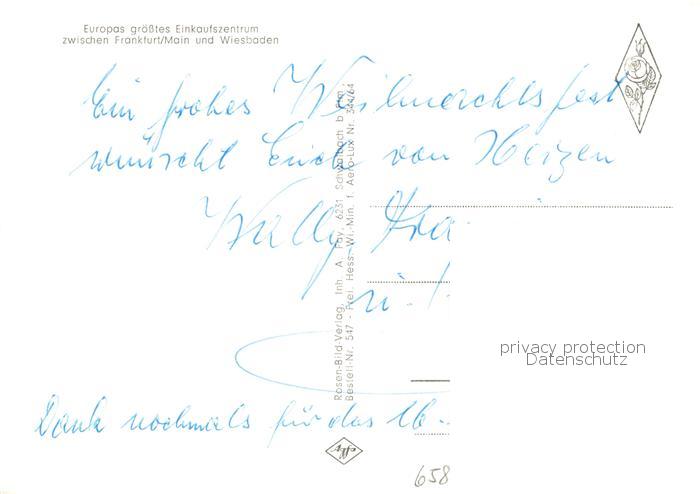 Europas größtes Einkaufszentrum
zwischen Frankfurt/Main und Wiesbaden
Ein frohes Weihnachtsfest
wünscht Euch von Herzen
Wally,
u.
Dank nochmals für das
Rosen-Bild-Verlag, Inh. A. Fay, 6231 Schwalbach b. Ffm.
Bestell-Nr. 547 - Frei. Hess. Wi.-Min. f. Aero-Lux Nr. 344/64
privacy protection
Datenschutz
effy
658